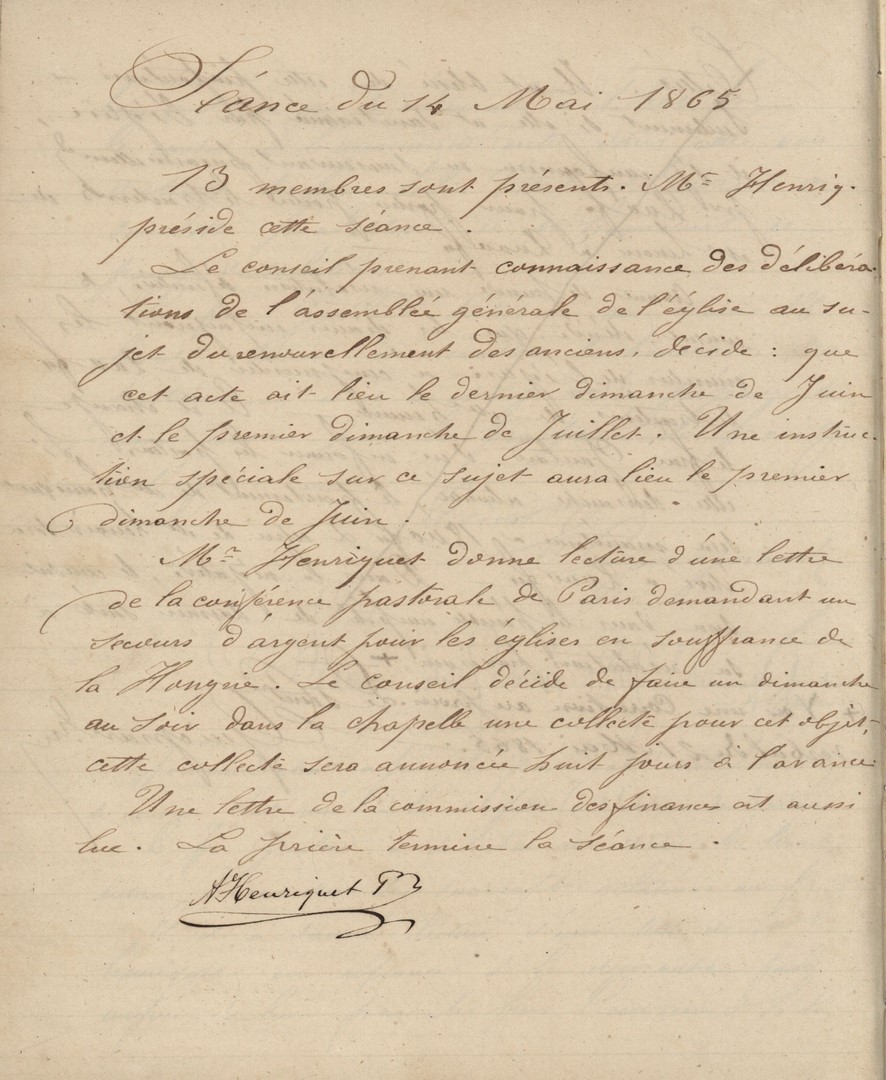 Séance du 14 Mai 1865
13 membres sont présents. Mr Henriq.
préside cette séance.
Le conseil prenant connaissance des délibéra-
tions de l'assemblée générale de l'église au su-
jet du renouvellement des anciens, décide : que
cet acte ait lieu le dernier dimanche de Juin
et le premier dimanche de Juillet. Une instruc-
tion spéciale sur ce sujet aura lieu le premier
dimanche de Juin.
Mr Henriquet donne lecture d'une lettre
de la conférence pastorale de Paris demandant un
secours d'argent pour les églises en souffrance de
la Hongrie. Le conseil décide de faire un dimanche
au soir dans la chapelle une collecte pour cet objet,
cette collecte sera annoncée huit jours à l'avance.
Une lettre de la commission des finances est aussi
lue. La prière termine la séance.
A Henriquet Pr